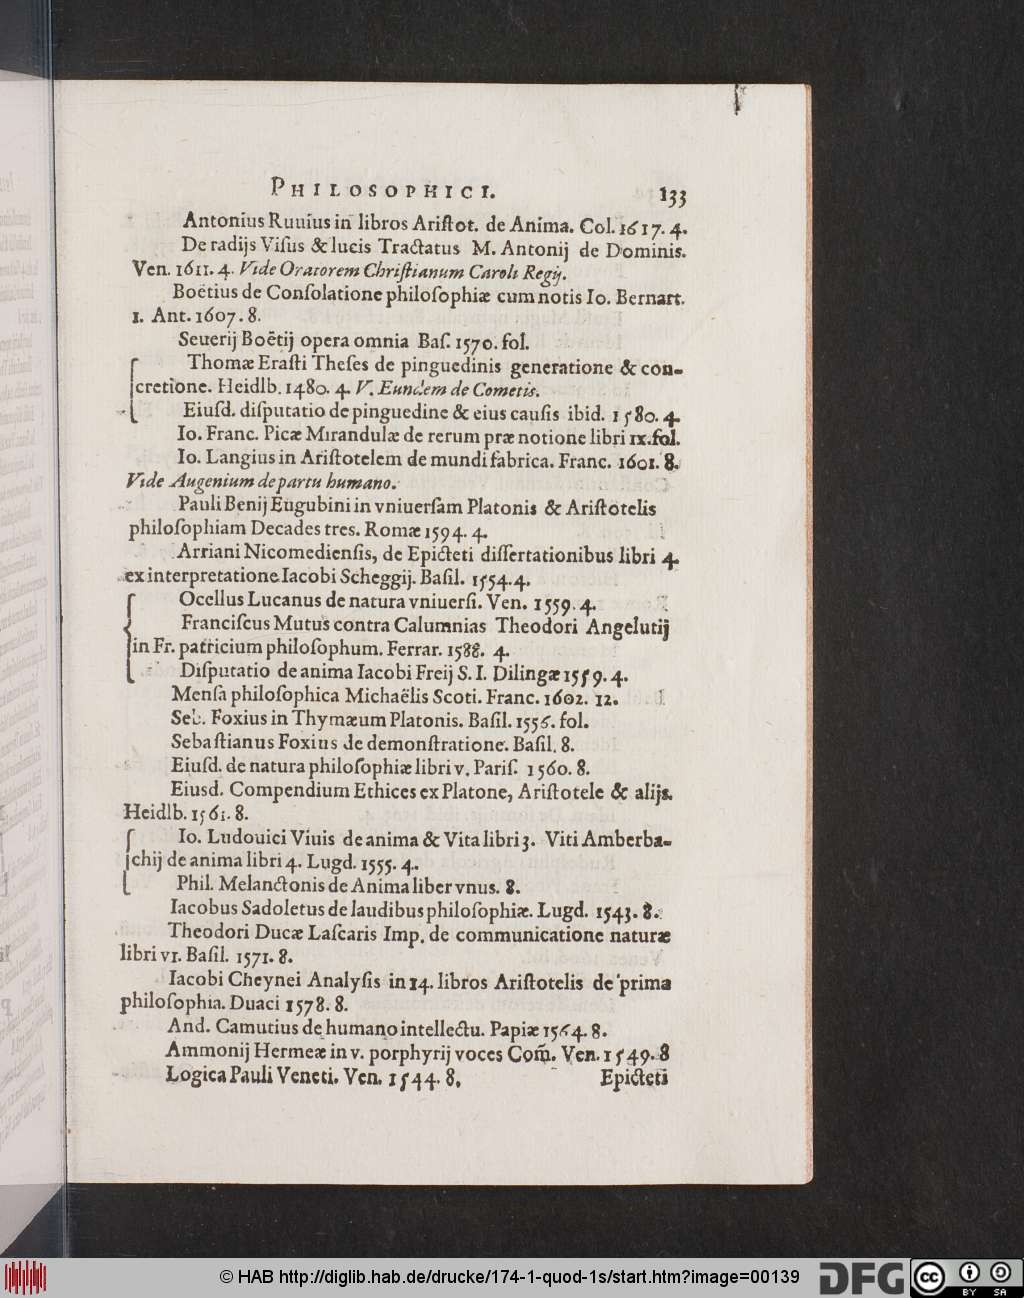 PHILOSOPHICI. 133
Antonius Ruuius in libros Ariſtot. de Anima. Col. 1617. 4.
De radijs Viſus & lucis Tractatus M. Antonij de Dominis.
Ven. 1611. 4. Vide Oratorem Chriſtianum Caroli Regij.
Boëtius de Conſolatione philoſophiæ cum notis Io. Bernart.
1. Ant. 1607. 8.
Seuerij Boëtij opera omnia Baſ. 1570. fol.
Thomæ Eraſti Theſes de pinguedinis generatione & con-
cretione. Heidlb. 1480. 4. V. Eundem de Cometis.
Eiuſd. diſputatio de pinguedine & eius cauſis ibid. 1580. 4
Io. Franc. Picæ Mirandulæ de rerum prænotione libri IX. fol.
Io. Langius in Ariſtotelem de mundi fabrica. Franc. 1601. 8.
Vide Augenium de partu humano.
Pauli Benij Eugubini in vniuerſam Platonis & Ariſtotelis
philoſophiam Decades tres. Romæ 1594. 4.
Arriani Nicomedienſis, de Epicteti diſſertationibus libri 4.
ex interpretatione Iacobi Scheggij. Baſil. 1554. 4.
Ocellus Lucanus de natura vniuerſi. Ven. 1559. 4.
Franciſcus Mutus contra Calumnias Theodori Angelutij
in Fr. patricium philoſophum. Ferrar. 1588. 4.
Diſputatio de anima Iacobi Freij S. I. Dilingæ 1559. 4.
Menſa philoſophica Michaëlis Scoti. Franc. 1602. 12.
Seb. Foxius in Thymæum Platonis. Baſil. 1556. fol.
Sebaſtianus Foxius de demonſtratione. Baſil. 8.
Eiuſd. de natura philoſophiæ libri v. Pariſ. 1560. 8.
Eiusd. Compendium Ethices ex Platone, Ariſtotele & alijs.
Heidlb. 1561. 8.
Io. Ludouici Viuis de anima & Vita libri 3. Viti Amberba-
chij de anima libri 4. Lugd. 1555. 4.
Phil. Melanctonis de Anima liber vnus. 8.
Iacobus Sadoletus de laudibus philoſophiæ. Lugd. 1543. 8.
Theodori Ducæ Laſcaris Imp. de communicatione naturæ
libri VI. Baſil. 1571. 8.
Iacobi Cheynei Analyſis in 14. libros Ariſtotelis de prima
philoſophia. Duaci 1578. 8.
And. Camutius de humano intellectu. Papiæ 1564. 8.
Ammonij Hermeæ in v. porphyrij voces Com̃. Ven. 1549. 8
Logica Pauli Veneti. Ven. 1544. 8, Epicteti
© HAB http://diglib.hab.de/drucke/174-1-quod-1s/start.htm?image=00139
DFG cc BY SA